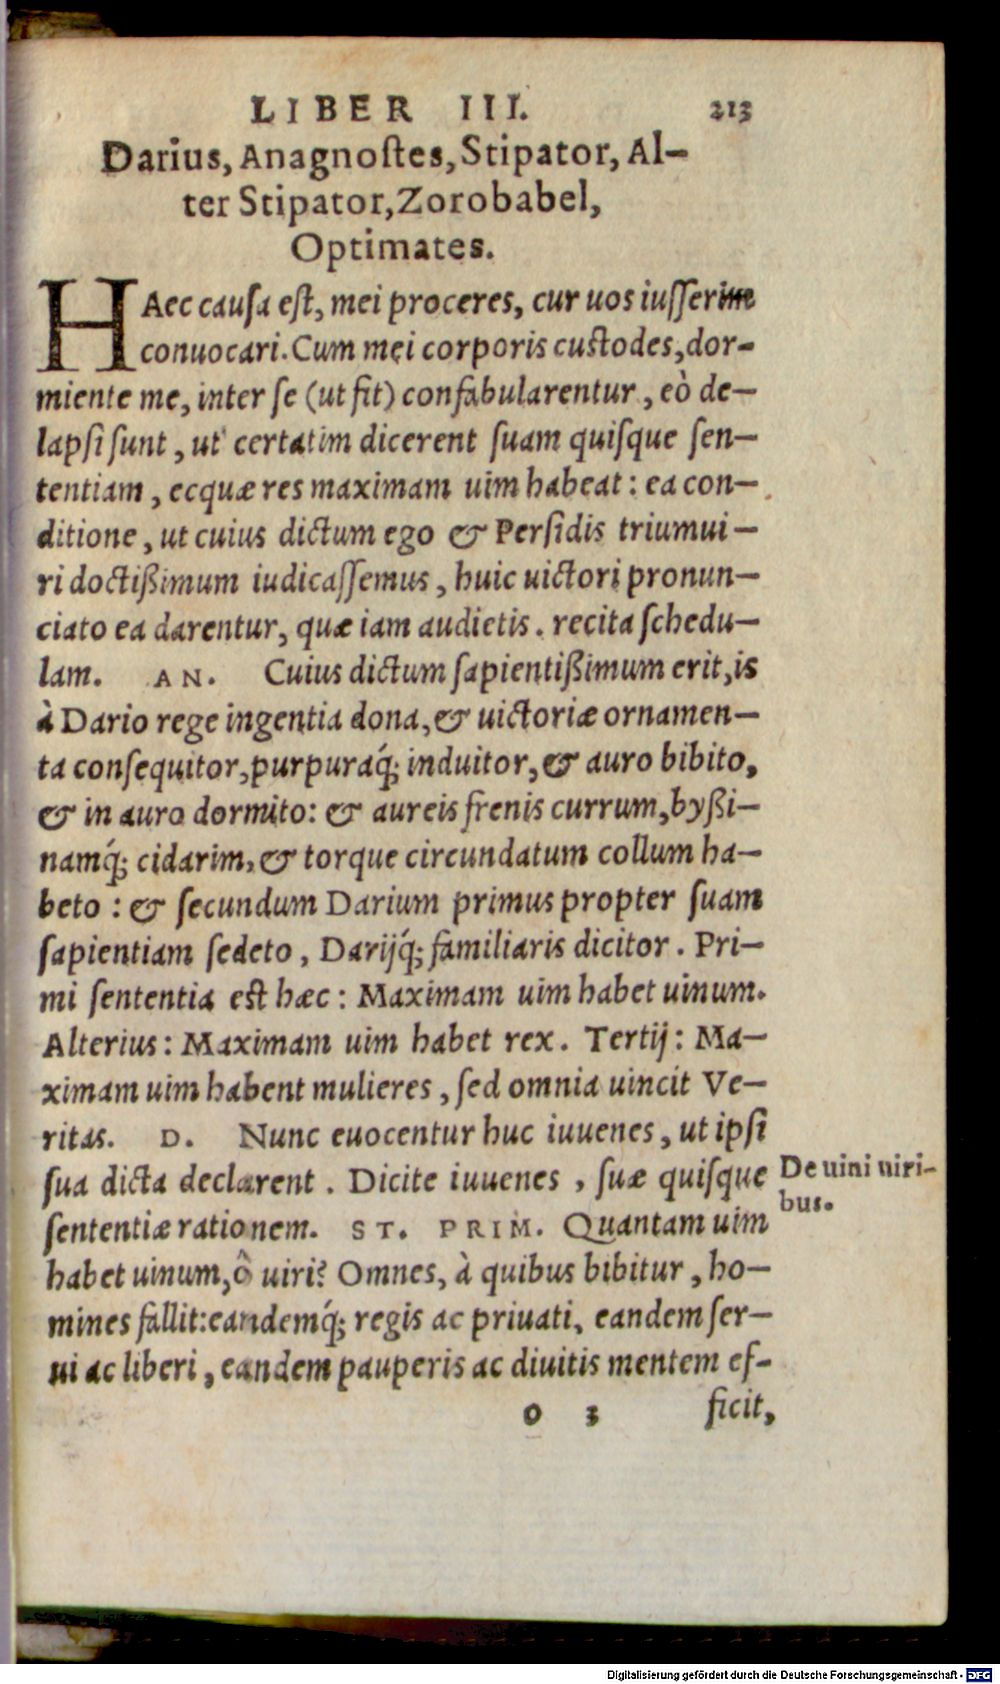 LIBER III. 213
Darius, Anagnostes, Stipator, Al-
ter Stipator, Zorobabel,
Optimates.
HAec causa est, mei proceres, cur uos iusserim
conuocari. Cum mei corporis custodes, dor-
miente me, inter se (ut fit) confabularentur, eò de-
lapsi sunt, ut certatim dicerent suam quisque sen-
tentiam, ecquæ res maximam uim habeat: ea con-
ditione, ut cuius dictum ego & Persidis triumui-
ri doctißimum iudicassemus, huic uictori pronun-
ciato ea darentur, quæ iam audietis. recita schedu-
lam. AN. Cuius dictum sapientißimum erit, is
à Dario rege ingentia dona, & uictoriæ ornamen-
ta consequitor, purpuraq́; induitor, & auro bibito,
& in auro dormito: & aureis frenis currum, byßi-
namq́; cidarim, & torque circundatum collum ha-
beto: & secundum Darium primus propter suam
sapientiam sedeto, Darijq́; familiaris dicitor. Pri-
mi sententia est hæc: Maximam uim habet uinum.
Alterius: Maximam uim habet rex. Tertij: Ma-
ximam uim habent mulieres, sed omnia uincit Ve-
ritas. D. Nunc euocentur huc iuuenes, ut ipsi
sua dicta declarent. Dicite iuuenes, suæ quisque
De uini uiri-
bus.
sententiæ rationem. ST. PRIM. Quantam uim
habet uinum, ô uiri? Omnes, à quibus bibitur, ho-
mines fallit: eandemq́; regis ac priuati, eandem ser-
ui ac liberi, eandem pauperis ac diuitis mentem ef-
o 3 ficit,
Digitalisierung gefördert durch die Deutsche Forschungsgemeinschaft - DFG